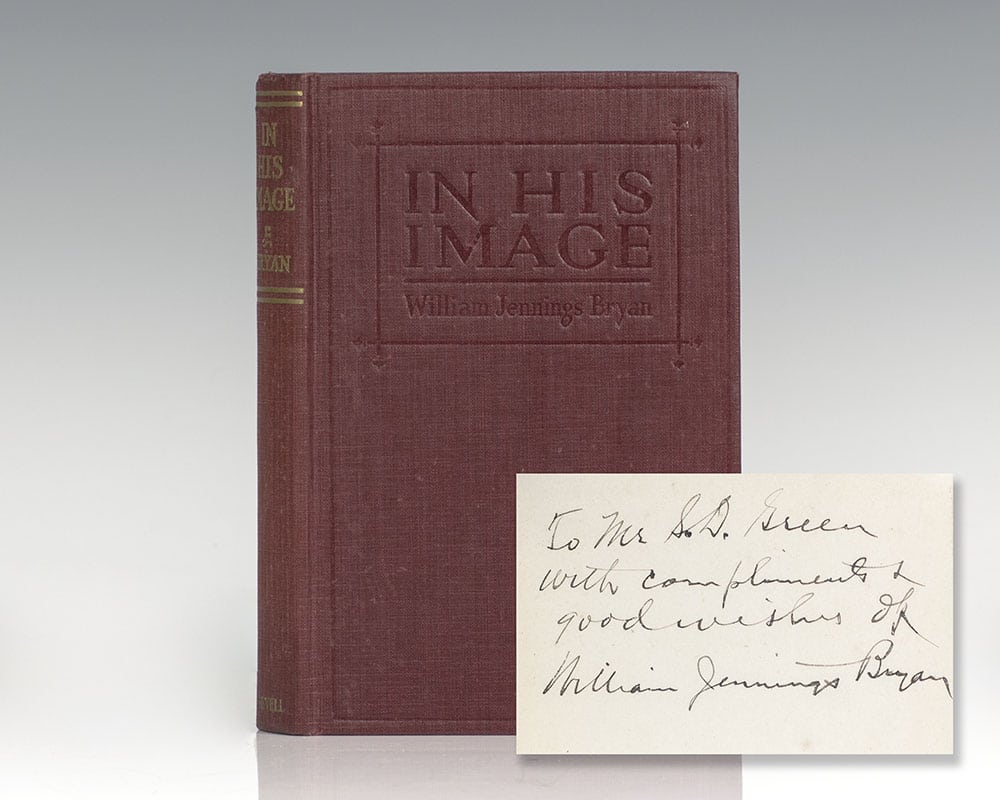 IN
HIS
IMAGE
BRYAN
REVELL
IN HIS
IMAGE
William Jennings Bryan
To Mr S. D. Green
with compliments &
good wishes of
William Jennings Bryan